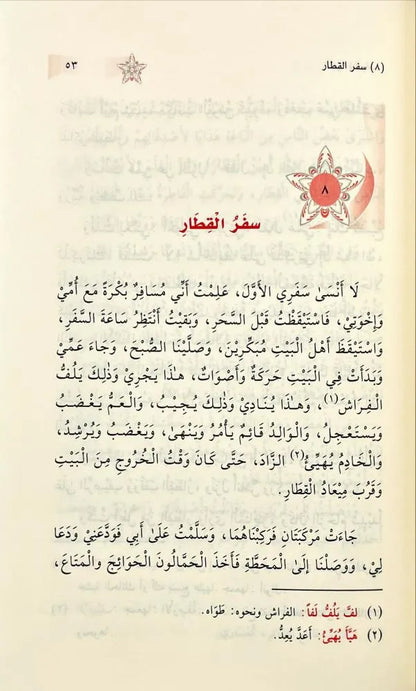 (٨) سفر القطار
٥٣
٨
سفَرُ الْقِطَارِ
لَا أَنْسَىٰ سَفَرِي الأَوَّلَ، عَلِمْتُ أَنِّي مُسَافِرٌ بُكْرَةً مَعَ أُمِّيْ
وَإِخْوَتِيْ، فَاسْتَيْقَظْتُ قَبْلَ السَّحَرِ، وَبَقِيْتُ أَنْتَظِرُ سَاعَةَ السَّفَرِ،
وَاسْتَيْقَظَ أَهْلُ الْبَيْتِ مُبَكِّرِيْنَ، وَصَلَّيْنَا الصُّبْحَ، وَجَاءَ عَمِّيْ
وَبَدَأَتْ فِي الْبَيْتِ حَرَكَةٌ وَأَصْوَاتٌ، هٰذَا يَجْرِيْ وَذٰلِكَ يَلُفُّ
الْفِرَاشَ(١)، وَهٰذَا يُنَادِيْ وَذٰلِكَ يُجِيْبُ، وَالْعَمُّ يَغْضَبُ
وَيَسْتَعْجِلُ، وَالْوَالِدُ قَائِمٌ يَأْمُرُ وَيَنْهَىٰ، وَيَغْضَبُ وَيُرْشِدُ،
وَالْخَادِمُ يُهَيِّئُ(٢) الزَّادَ، حَتَّىٰ كَانَ وَقْتُ الْخُرُوجِ مِنَ الْبَيْتِ
وَقَرُبَ مِيْعَادُ الْقِطَارِ.
جَاءَتْ مَرْكَبَتَانِ فَرَكِبْنَاهُمَا، وَسَلَّمْتُ عَلَىٰ أَبِي فَوَدَّعَنِيْ وَدَعَا
لِيْ، وَوَصَلْنَا إِلَىٰ الْمَحَطَّةِ فَأَخَذَ الْحَمَّالُونَ الْحَوَائِجَ وَالْمَتَاعَ،
(١) لَفَّ يَلُفُّ لَفّاً: الفراش ونحوه: طَوَاه.
(٢) هَيَّأَ يُهَيِّئُ: أَعَدَّ يُعِدُّ.